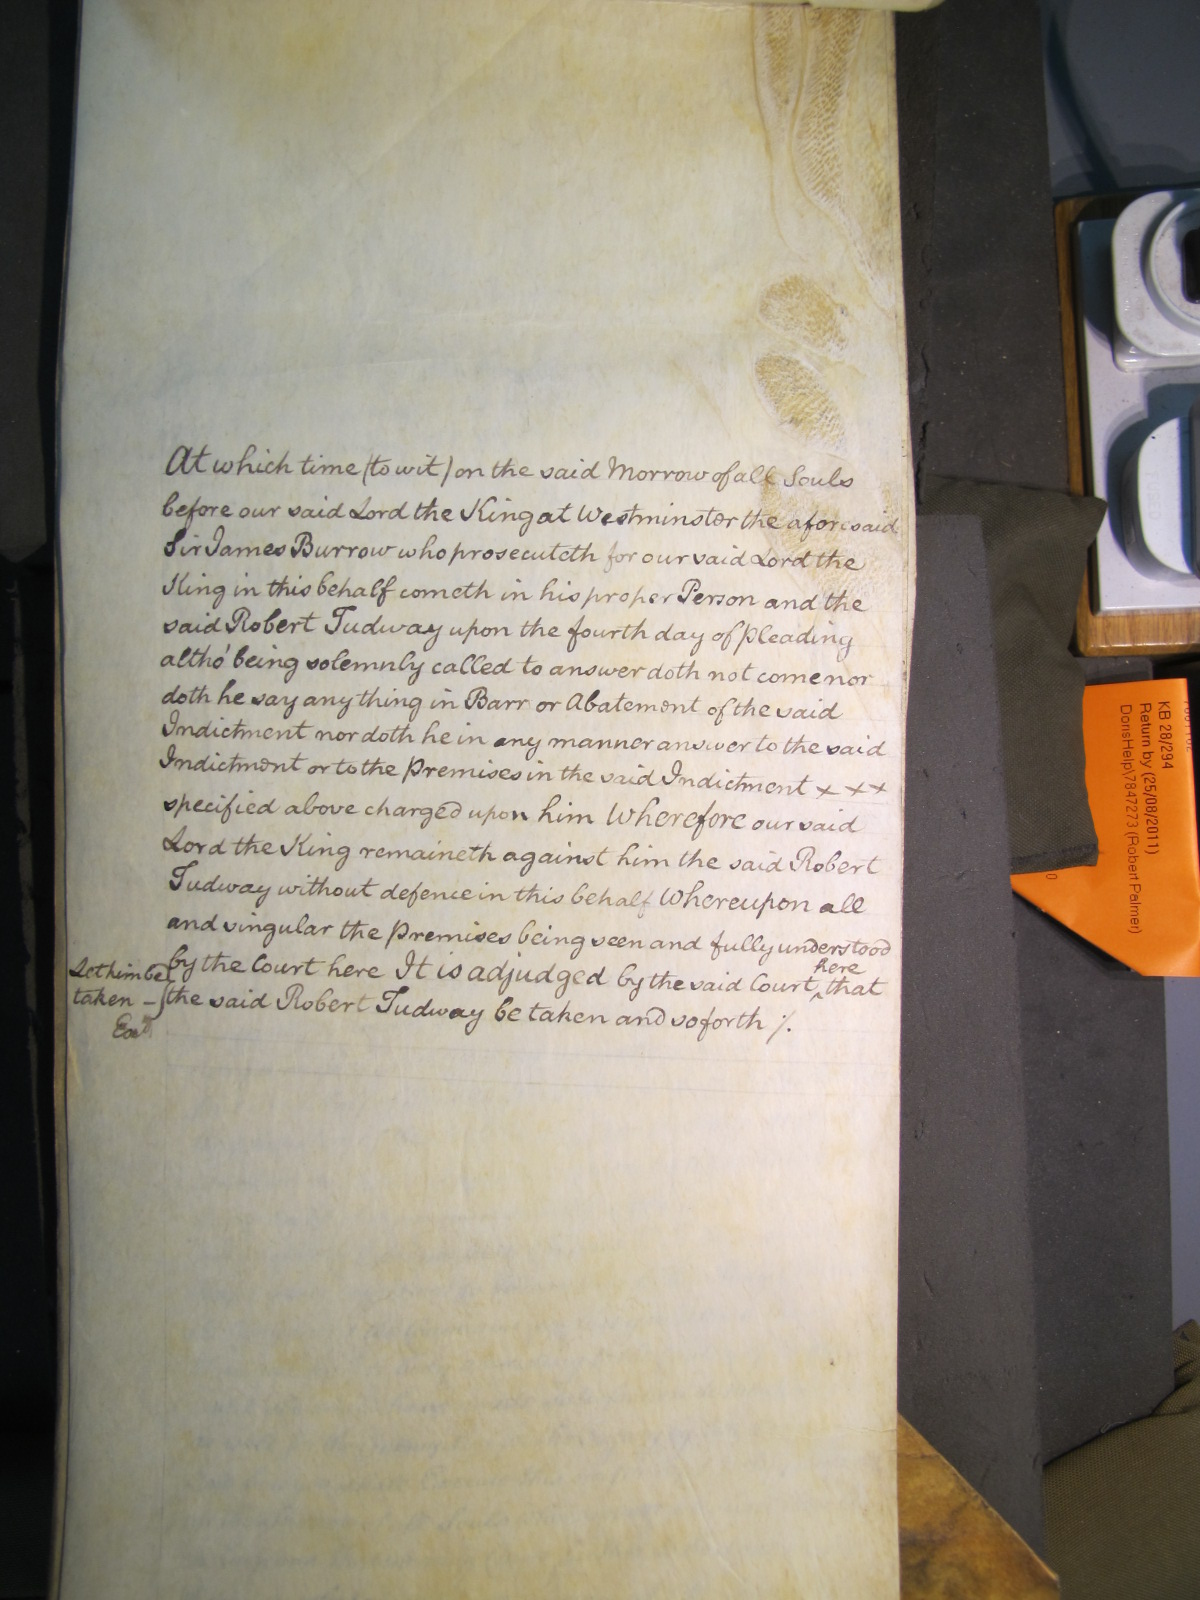 At which time (to wit) on the said Morrow of all Souls
before our said Lord the King at Westminster the aforesaid
Sir James Burrow who prosecuteth for our said Lord the
King in this behalf cometh in his proper Person and the
said Robert Tudway upon the fourth day of pleading
altho' being solemnly called to answer doth not come nor
doth he say any thing in Barr or Abatement of the said
Indictment nor doth he in any manner answer to the said
Indictment or to the Premises in the said Indictment x x x
specified above charged upon him Wherefore our said
Lord the King remaineth against him the said Robert
Tudway without defence in this behalf Whereupon all
and singular the Premises being seen and fully understood
by the Court here It is adjudged by the said Court here that
the said Robert Tudway be taken and so forth /.
Let him be
taken -
KB 28/294
Return by (25/08/2011)
DorisHelp\7847273 (Robert Palmer)